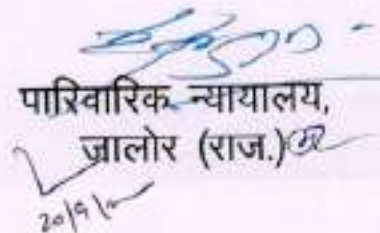 पारिवारिक न्यायालय,
जालोर (राज.)